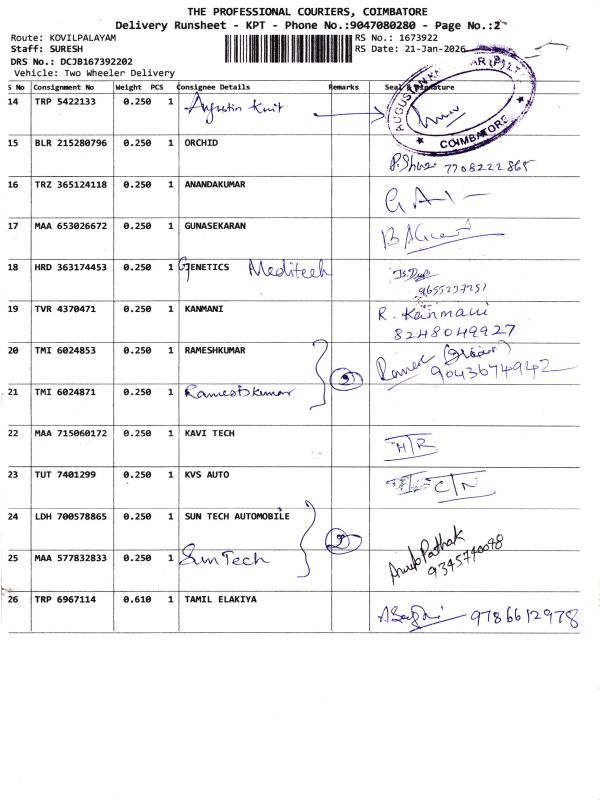 THE PROFESSIONAL COURIERS, COIMBATORE
Delivery Runsheet - KPT - Phone No.:9047080280 - Page No.:2
Route: KOVILPALAYAM RS No.: 1673922
Staff: SURESH RS Date: 21-Jan-2026
DRS No.: DCJB167392202
Vehicle: Two Wheeler Delivery
S No Consignment No Weight PCS Consignee Details Remarks Seal & Signature
14 TRP 5422133 0.250 1 Augustin Knit
COIMBATORE
15 BLR 215280796 0.250 1 ORCHID
7708222865
16 TRZ 365124118 0.250 1 ANANDAKUMAR
17 MAA 653026672 0.250 1 GUNASEKARAN
18 HRD 363174453 0.250 1 GENETICS Meditech
9655237251
19 TVR 4370471 0.250 1 KANMANI R. Kanmani
8248049927
20 TMI 6024853 0.250 1 RAMESHKUMAR 2
9043674942
21 TMI 6024871 0.250 1 Rameshkumar
22 MAA 715060172 0.250 1 KAVI TECH H/R
23 TUT 7401299 0.250 1 KVS AUTO C/N
24 LDH 700578865 0.250 1 SUN TECH AUTOMOBILE 2
25 MAA 577832833 0.250 1 Sun Tech Pathak
9345740098
26 TRP 6967114 0.610 1 TAMIL ELAKIYA 9786612978